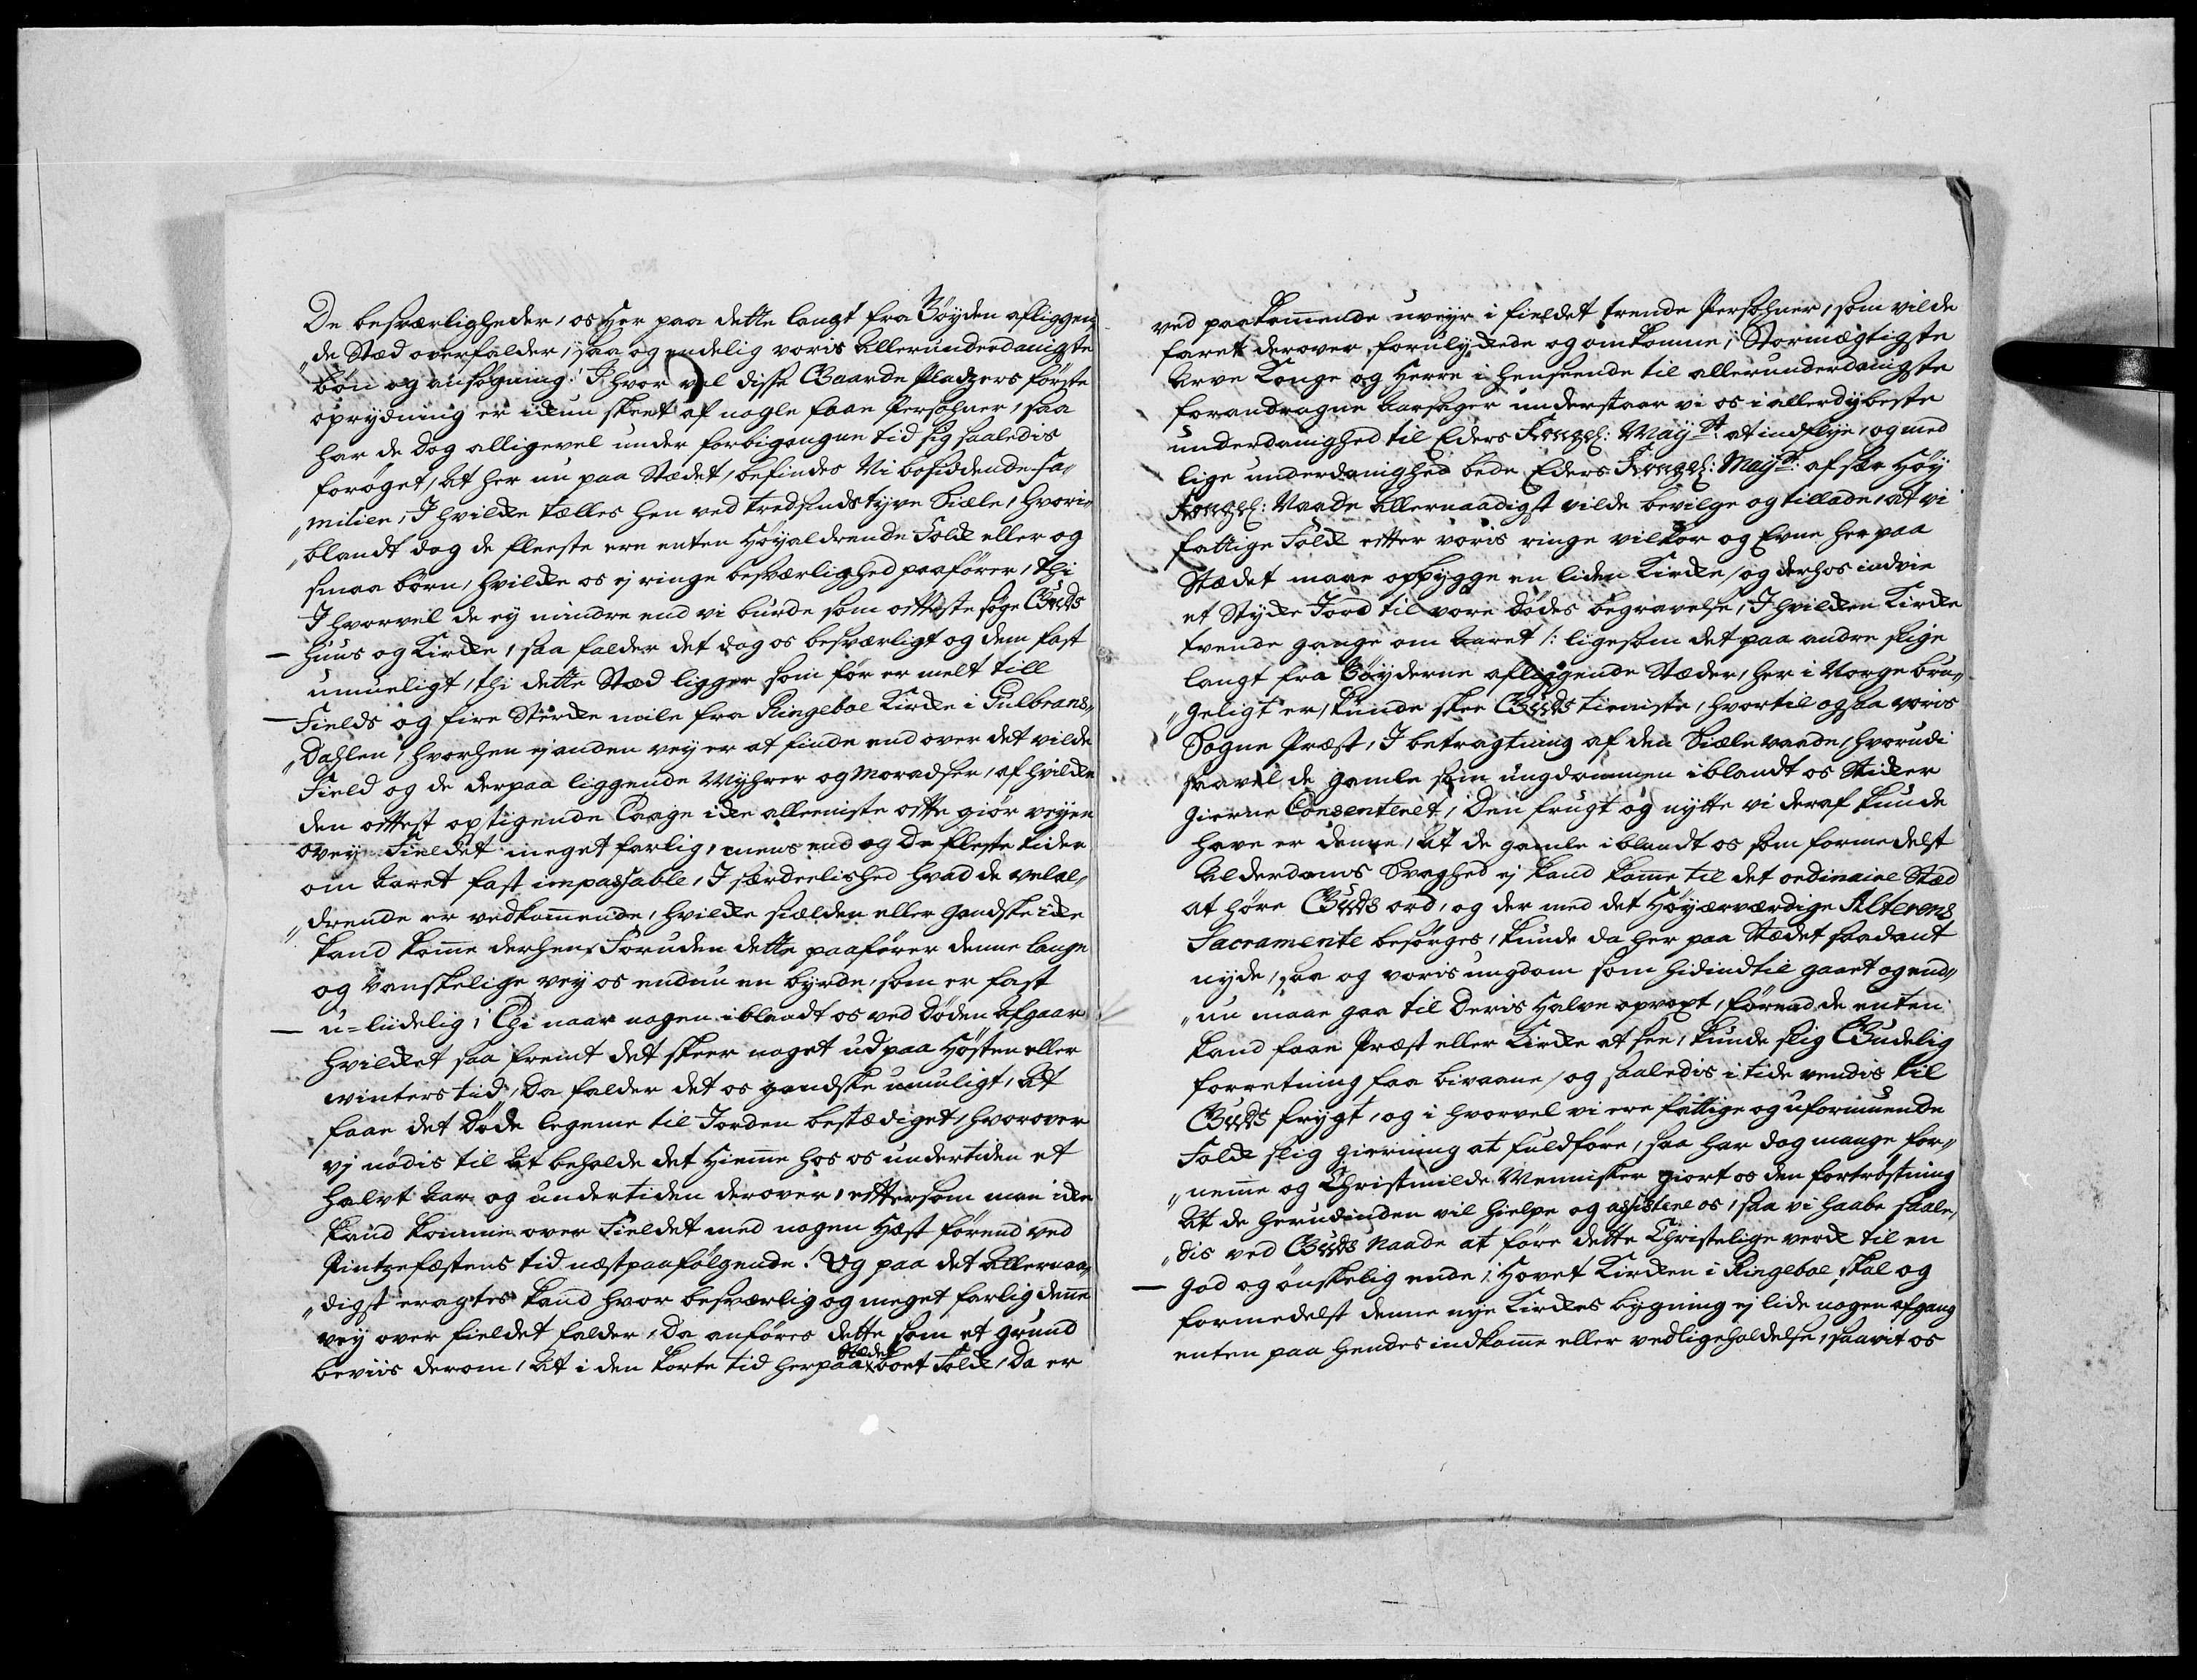 De besværligheder, os Her paa dette langt fra Bøyden afliggen„
„de Stæd overfalder, saa og endelig voris Allerunderdanigste
bøn og ansøgning: I hvor vel disse Gaarde Pladzers første
oprydning er ikun skeet af nogle faae Persohner, saa
har de dog alligevel under forbigangne tid sig saaledis
forøget, at her nu paa Stædet, befindes Ni bosiddende Fa„
„milier, I hvilke tælles hen ved tredsindstyve Siæle, hvori„
„blandt dog de fleeste ere enten Høyaldrende Folk eller og
smaa børn, hvilke os ej ringe besværlighed paafører, thi
I hvorvel de ey mindre end vi burde som offteste søge Guds
Huus og Kirke, saa falder det dog os besværligt og dem fast
umueligt, thi dette Stæd ligger som før er melt till
Fields og fire Sterke miile fra Ringeboe Kirke i Gulbrans„
„Dahlen, hvorhen ej anden vey er at finde end over det vilde
Field og de derpaa liggende Myhrer og Moradser, af hvilke
den offtest opstigende Taage ikke alleeniste offte giør veyen
over Fieldet meget farlig, mens end og de fleste tider
om aaret fast impassable, I særdeelished hvad de velal„
„drende er vedkom̄ende, hvilke siælden eller gandske ikke
kand kom̄e derhen, Foruden dette paafører denne lange
og vanskelige vey os endnu en byrde, som er fast
u=liidelig; Thi naar nogen iblandt os ved Døden afgaar
hvilket saa fremt det skeer noget ud paa Høsten eller
winters tid, da falder det os gandske umuligt, at
faae det Døde legeme til Jorden bestædiget, hvorover
vj nødis til at beholde det Hiem̄e hos os undertiden et
halvt aar og undertiden derover, efftersom man ikke
kand komme over Fieldet med nogen Hæst førend ved
Pintzefæstens tid næstpaafølgende. Og paa det allernaa„
„digst eragtes kand hvor besværlig og meget farlig den̄e
vey over fieldet falder, da anføres dette som et grund
beviis derom, at i den korte tid her paa Stædet boet Folk, da er
ved paakom̄ende uveyr i fieldet trende Persohner, som vilde
faret derover forulykkede og omkomne, Stormægtigste
Arve Konge og Herre i henseende til allerunderdanigste
forandragne aarsager understaar vi os i allerdybeste
underdanighed til Eders Kongel: Mayst: at indflye, og med
lige underdanighed bede Eders Kongel: Mayst: af sær Høy
Kongel: Naade allernaadigst vilde bevilge og tillade, at vi
fattige Folk effter voris ringe vilkor og Evne her paa
Stædet maae opbygge en liden Kirke, og derhos indvie
et Stykke Jord til vore Dødes begravelse, I hvilken Kirke
tvende gange om aaret /: ligesom det paa andre slige
langt fra Bøyderne afliggende Stæder, her i Norge bru„
„geligt er, kunde skee Guds tieniste, hvortil ogsaa voris
Sogne Præst, I betragtning af den Siæle vaade, hvorudi
saavel de gamle som ungdommen iblandt os Stikker
gierne Consenteret, Den frugt og nytte vi deraf kunde
have er denne, at de gamle iblandt os som formedelst
alderdoms Svaghed ej kand kom̄e til det ordinaire Stæd
at høre Guds ord, og der med det Høyærværdige Alterens
Sacramente besørges, kunde da her paa Stædet saadant
nyde, saa og voris ungdom som hidindtil gaaet og end„
„nu maae gaa til Deris Halve opvoxt, førend de enten
kand faae Præst eller Kirke at see, kunde slig Gudelig
forretning faa bivaane, og saaledis i tide vendis til
Guds frygt, og i hvorvel vi ere fattige og uformuende
Folk slig gierning at fuldføre, saa har dog mange for„
„nem̄e og Christmilde Mennisker giort os den fortrøstning
at de herudinden vil hielpe og assistere os, saa vi haabe saale„
„dis ved Guds Naade at føre dette Christelige verk til en
god og ønskelig ende; Hovet Kirken i Ringeboe skal og
formedelst denne nye Kirkes bygning ej lide nogen afgang
enten paa hendes indkom̄e eller vedligeholdelse, saavit os